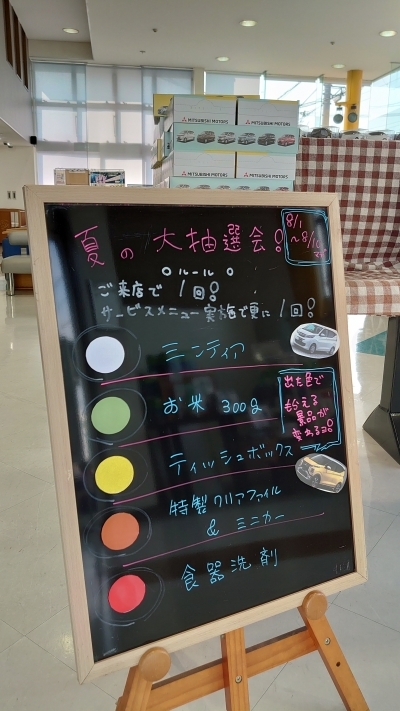 MITSUBISHI MOTORS
MITSUBISHI MOTORS
MITSUBISHI MOTORS
MITSUBISHI MOTORS
夏の大抽選会!
8/1
ルール
ご来店で 1回!
サービスメニュー実施で更に1回!
ミンティア
お米 300g
出た色で
もらえる
景品が
変わるヨ!
ティッシュボックス
特製クリアファイル
& ミニカー
食器洗剤